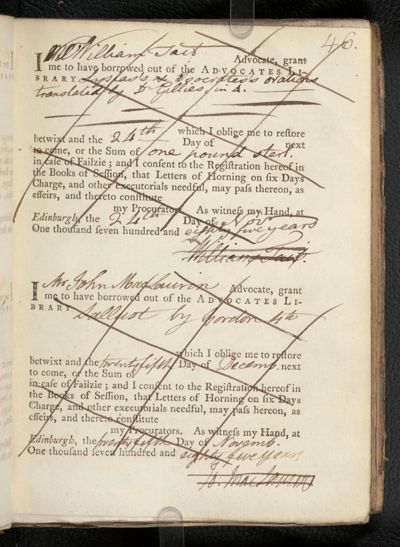 46.
I Mr William Tait Advocate, grant
me to have borrowed out of the ADVOCATES LI-
BRARY Lysias's & Isocrates's orations
translated by Dr Gillies in 4.
which I oblige me to restore
betwixt and the 24th Day of next
to come, or the Sum of one pound sterl.
in case of Failzie; and I consent to the Registration hereof in
the Books of Session, that Letters of Horning on six Days
Charge, and other executorials needful, may pass thereon, as
effeirs, and thereto constitute
my Procurators. As witness my Hand, at
Edinburgh, the 24th Day of Novr
One thousand seven hundred and eighty five years
William Tait.
I Mr John MacLaurin Advocate, grant
me to have borrowed out of the ADVOCATES LI-
BRARY Sallust by Gordon 4to
which I oblige me to restore
betwixt and the twenty fifth Day of Decemb. next
to come, or the Sum of
in case of Failzie; and I consent to the Registration hereof in
the Books of Session, that Letters of Horning on six Days
Charge, and other executorials needful, may pass hereon, as
effeirs, and thereto constitute
my Procurators. As witness my Hand, at
Edinburgh, the twenty fifth Day of Novemb.
One thousand seven hundred and eighty five Years
Jo. MacLaurin